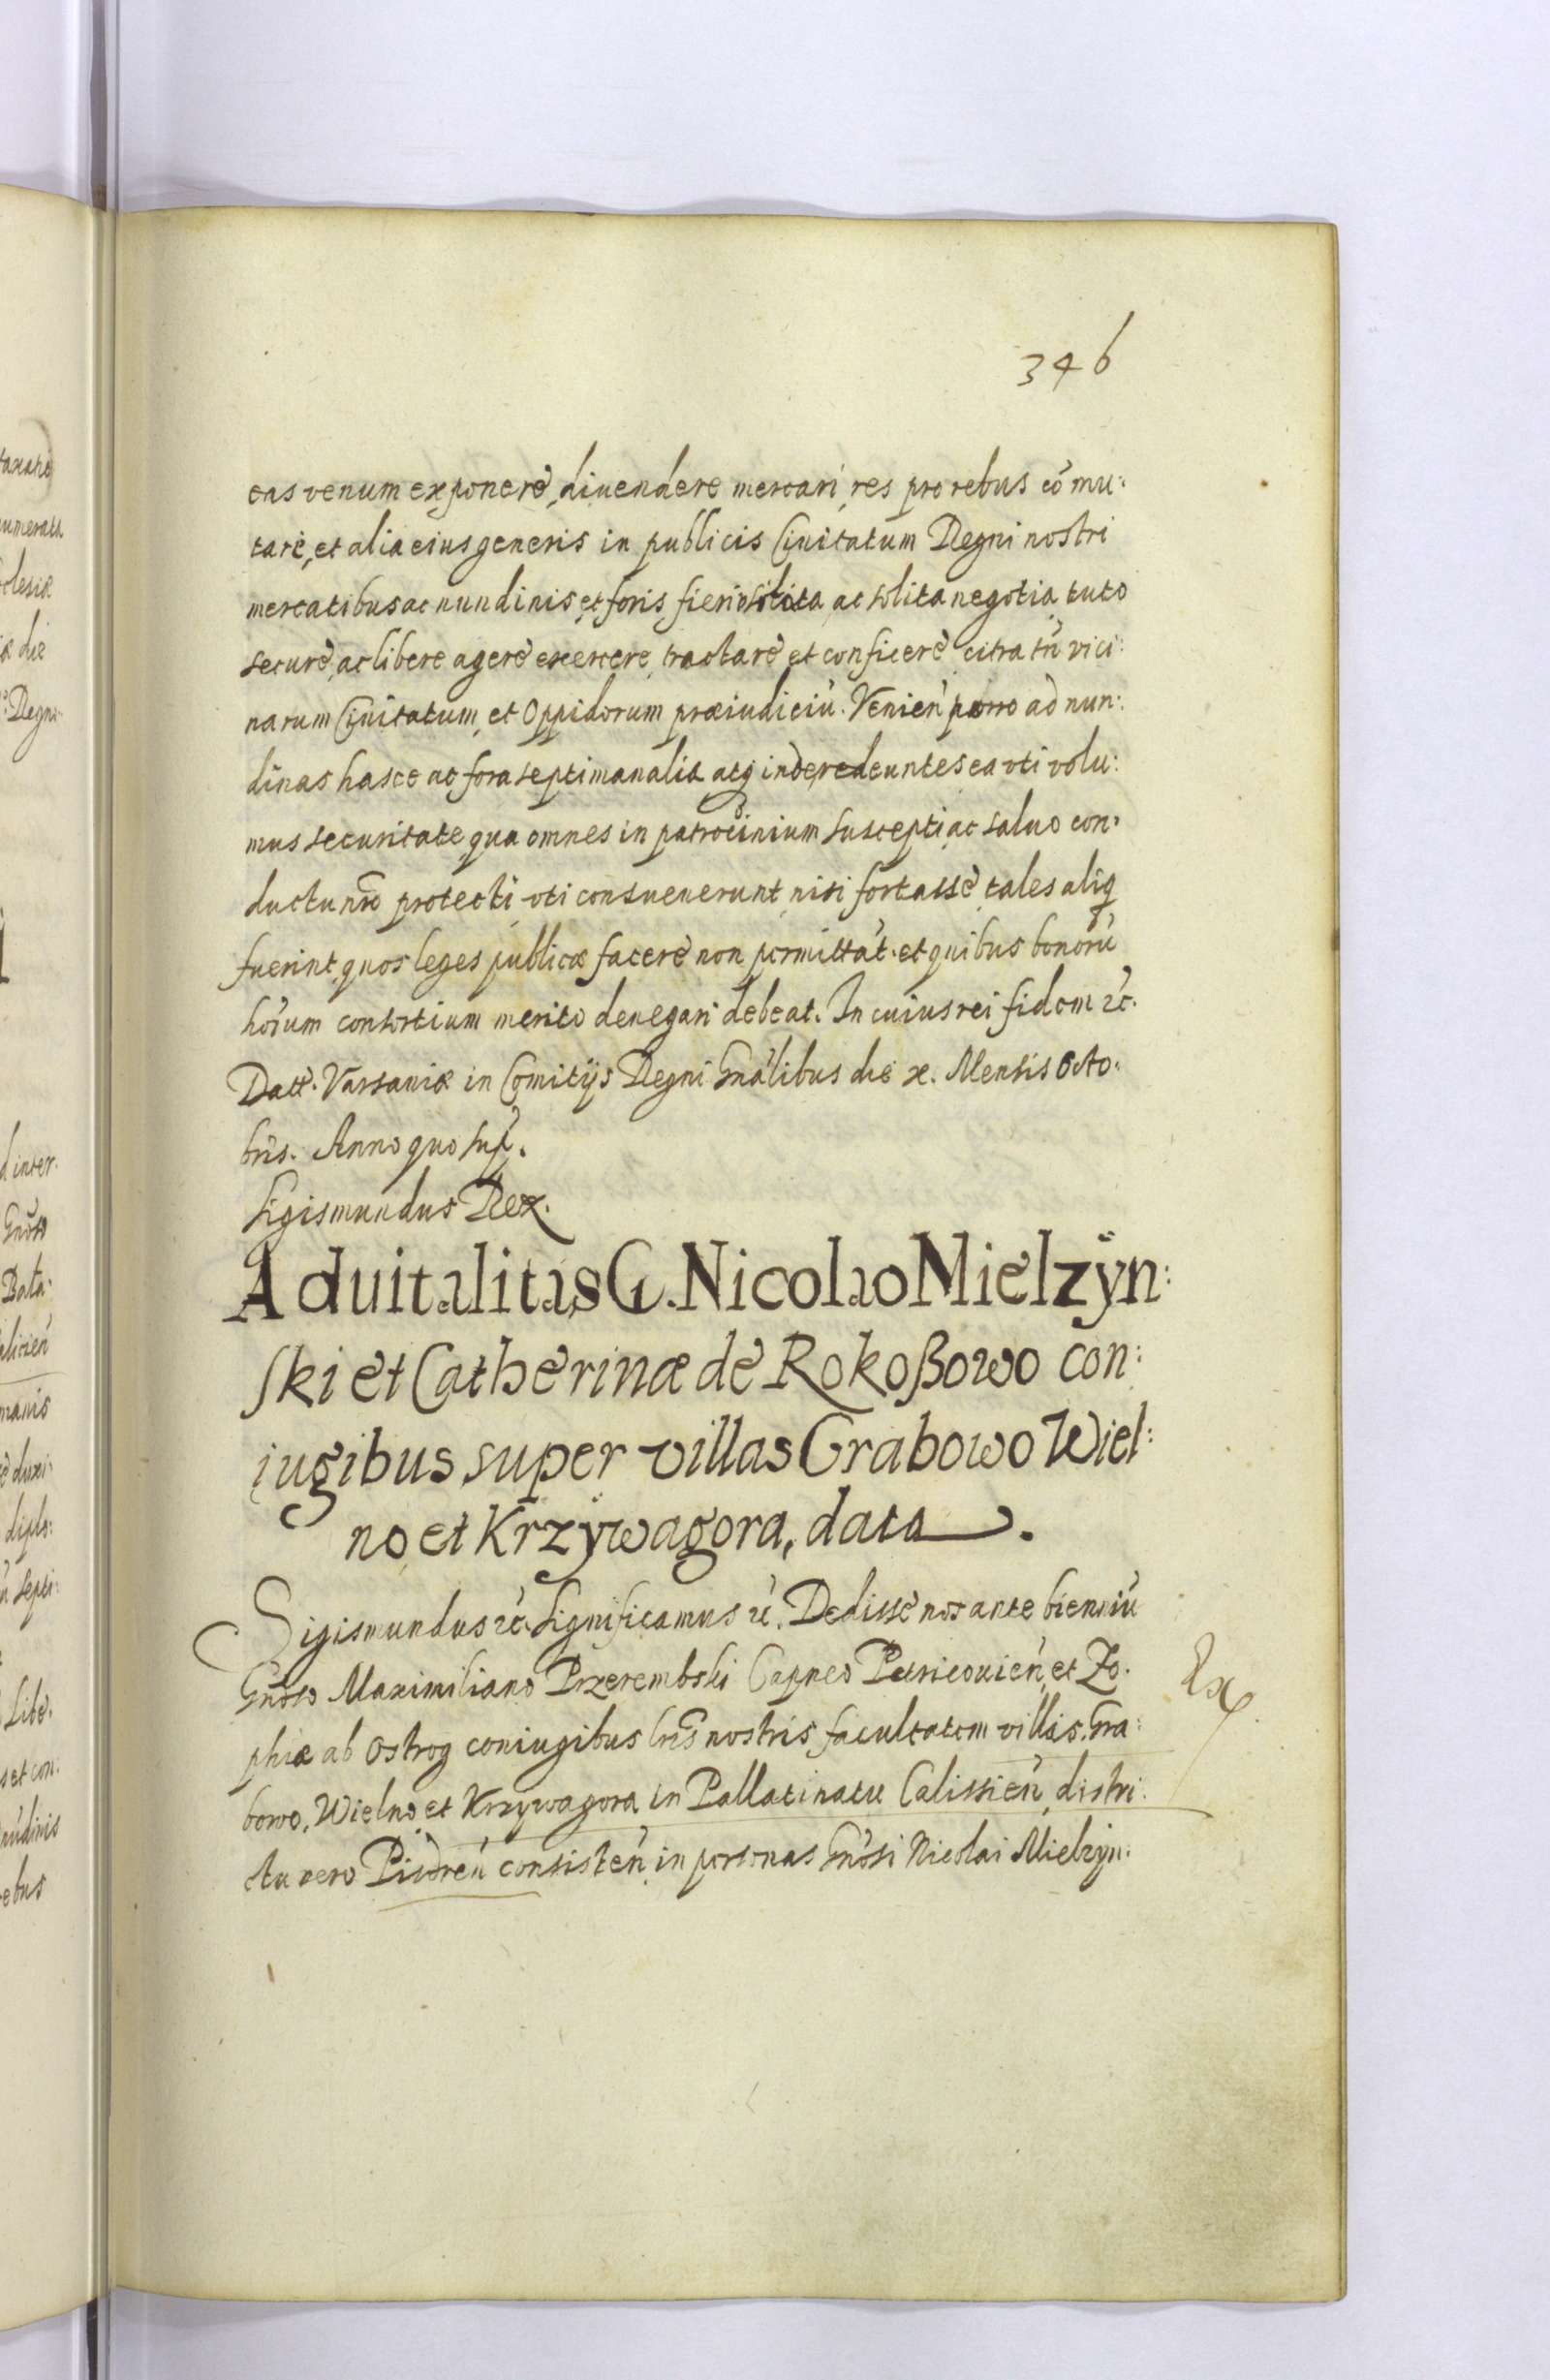 346
eas venum exponere, diuendere mercari, res pro rebus cōmu:
tare, et alia eius generis in publicis Ciuitatum Regni nostri
mercatibus ac nundinis, et foris fieri solita, ac solita negotia, tuto
secure, ac libere agere exercere, tractare et conficere citra tń vici:
narum Ciuitatum, et Oppidorum præiudiciú. Venień porro ad nun:
dinas hasce ac fora septimanalia atq inde redeuntes ea vti volu:
mus securitate, qua omnes in patrocinium suscepti, ac saluo con:
ductu nro protecti vti consueuerunt, nisi fortasse, tales aliq
fuerint, quos leges publicæ facere non permittāt. et quibus bonorú
hoium consortium merito denegari debeat. In cuius rei fidem ꝛc.
Datt. Varsauiæ in Comitijs Regni Gnālibus die x. Mensis Octo:
bris. Anno quo sup.
Sigismundus Rex.
Aduitalitas G. Nicolao Mielzÿn:
ski et Catherinæ de Rokoßowo con:
iugibus super villas Grabowo Wiel:
no, et Krzÿwagora, data.
Sigismundus ꝛc. Significamus ꝛc. Dedisse nos ante bienniú
Gnoso Maximiliano Przerembski Capneo Petricouień, et Zo:
phiæ ab Ostrog coniugibus lrīs nostris facultatem villas. Gra:
bowo, Wielno, et Krzywagora in Pallatinatu Calissień, distri:
ctu vero Pisdreń consisteń, in personas Gnosi Nicolai Mielzyn:
Ex